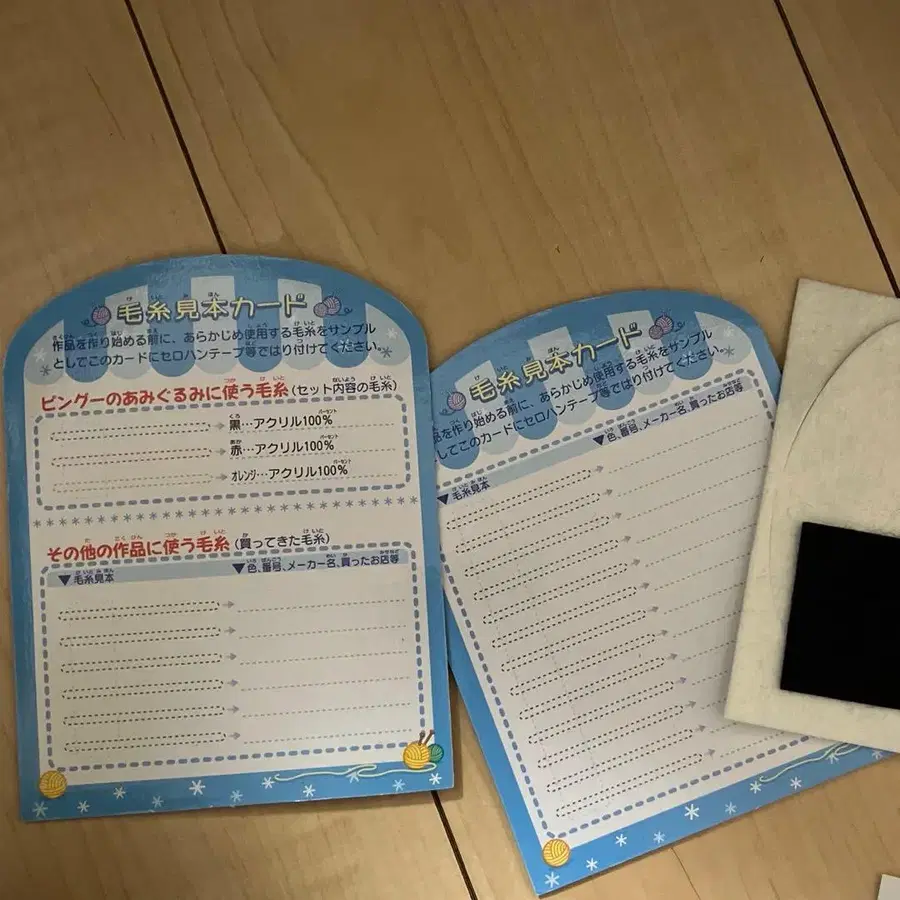 毛糸見本カード
作品を作り始める前に、あらかじめ使用する毛糸をサンプル
としてこのカードにセロハンテープ等ではり付けてください。
ピングーのあみぐるみに使う毛糸(セット内容の毛糸)
黒…アクリル100%
赤…アクリル100%
オレンジ…アクリル100%
その他の作品に使う毛糸(買ってきた毛糸)
▼毛糸見本 ▼色、番号、メーカー名、買ったお店等
毛糸見本カード
品を作り始める前に、あらかじめ使用する毛糸をサンプル
してこのカードにセロハンテープ等ではり付けてください。
▼毛糸見本 ▼色、番号、メーカー名、買ったお店等